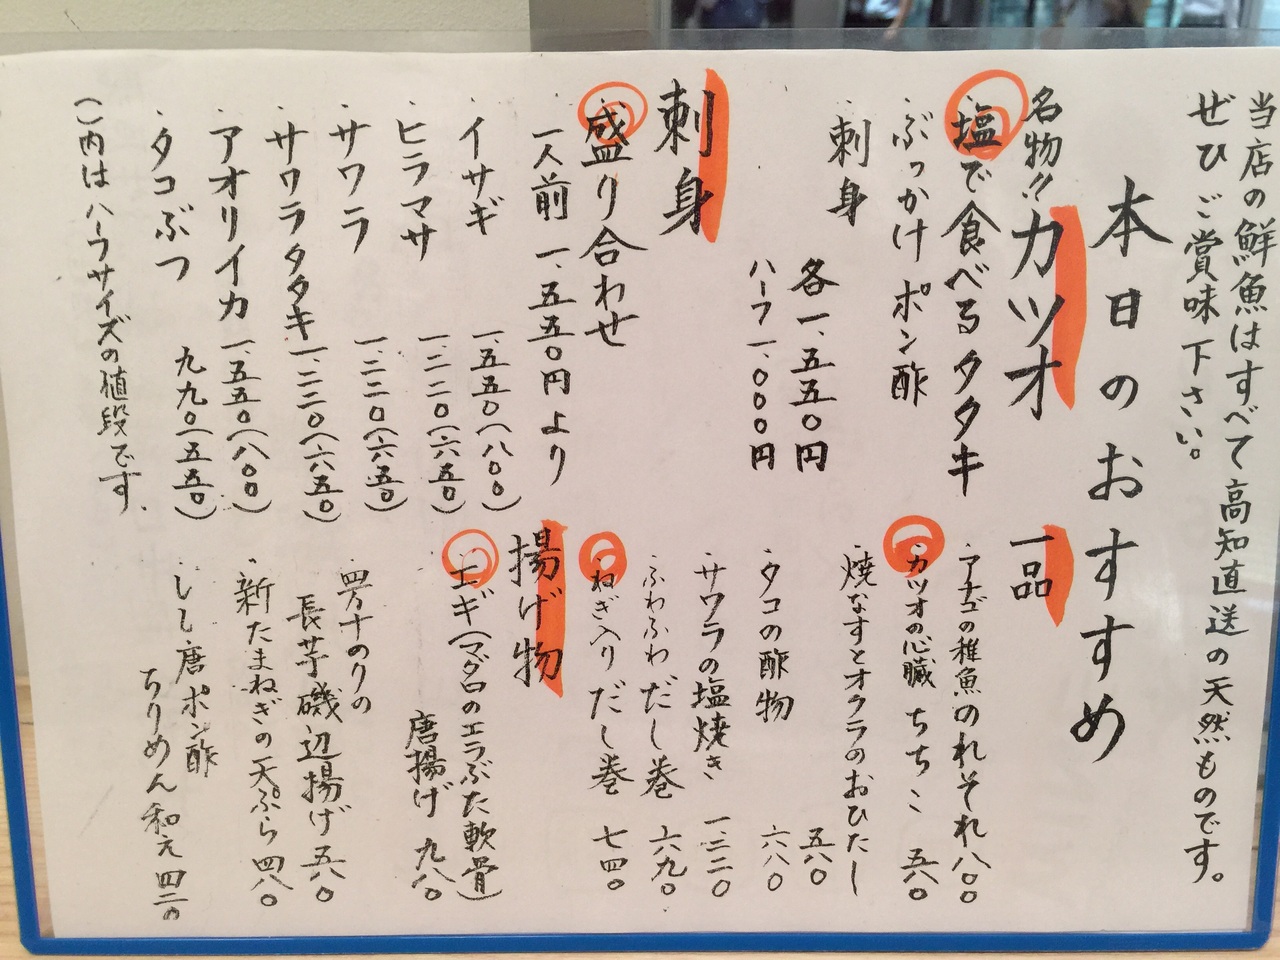 当店の鮮魚はすべて高知直送の天然ものです。
ぜひご賞味下さい。
本日のおすすめ
名物!!カツオ
・塩で食べるタタキ
・ぶっかけポン酢
・刺身
各一、五五〇円
ハーフ一、〇〇〇円
刺身
・盛り合わせ
一人前一、五五〇円より
・イサギ 一、五五〇(八〇〇)
・ヒラマサ 一、二二〇(六五〇)
・サワラ 一、二二〇(六五〇)
・サワラタタキ 一、二二〇(六五〇)
・アオリイカ 一、五五〇(八〇〇)
・タコぶつ 九九〇(五五〇)
( )内はハーフサイズの値段です.
一品
・アナゴの稚魚のれそれ 八〇〇
・カツオの心臓 ちちこ 五八〇
・焼なすとオクラのおひたし
五八〇
・タコの酢物 六八〇
・サワラの塩焼き 一、三二〇
・ふわふわだし巻 六九〇
・ねぎ入りだし巻 七四〇
揚げ物
・エギ(マグロのエラぶた軟骨)
唐揚げ 九八〇
・四万十のりの
長芋磯辺揚げ 五八〇
・新たまねぎの天ぷら 四八〇
・しし唐ポン酢
ちりめん和え 四二〇